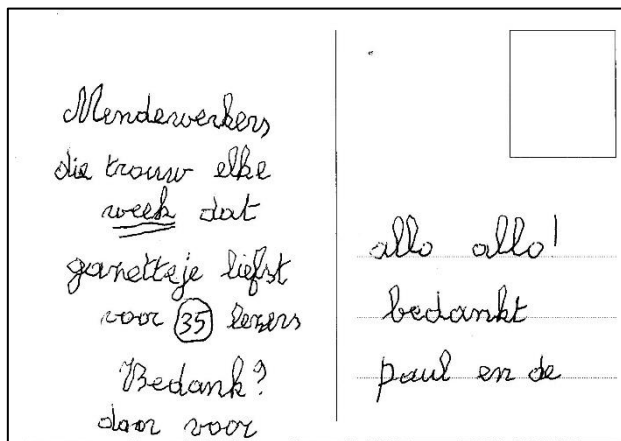 Mendewerkers
die trouw elke
week dat
gazetteje liefst
voor 35 lezers
Bedank?
daar voor
allo allo!
bedankt
paul en de